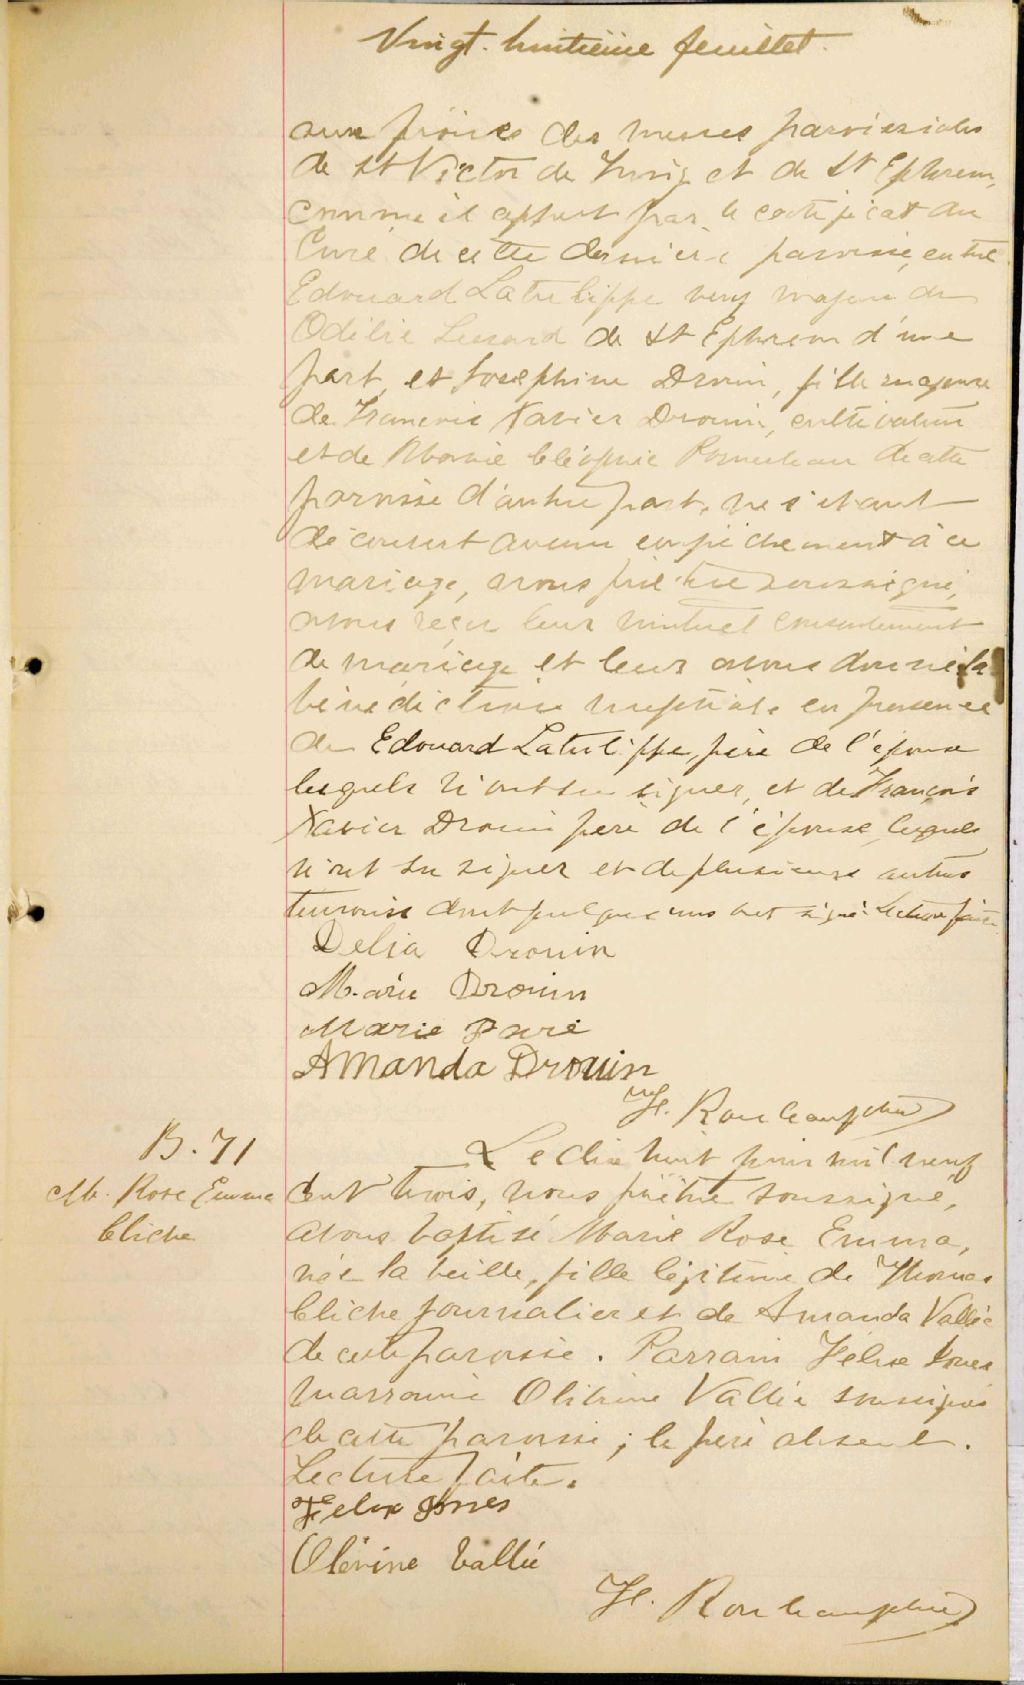 Vingt-huitième feuillet.
aux prônes des messes paroissiales
de St Victor de Tring et de St Ephrem,
comme il appert par le certificat du
Curé de cette dernière paroisse, entre
Edouard Latulippe veuf majeur de
Odélie Lessard de St Ephrem d'une
part, et Joséphine Drouin, fille majeure
de François Xavier Drouin, cultivateur
et de Marie Cléophie Pomerleau de cette
paroisse d'autre part, ne s'étant
découvert aucun empêchement à ce
mariage, nous prêtre soussigné,
avons reçu leur mutuel consentement
de mariage et leur avons donné la
bénédiction nuptiale en présence
de Edouard Latulippe, père de l'époux
lesquels n'ont su signer, et de François
Xavier Drouin père de l'épouse, lesquels
n'ont su signer et de plusieurs autres
témoins dont quelques uns ont signé. Lecture faite.
Delia Drouin
Marie Drouin
Marie Paré
Amanda Drouin
B. 71
M. Rose Emma
Cliche
Le dix huit juin mil neuf
cent trois, nous prêtre soussigné,
avons baptisé Marie Rose Emma,
née la veille, fille légitime de Thomas
Cliche journalier et de Amanda Vallée
de cette paroisse. Parrain Félix Jones
marraine Olivine Vallée soussignés
de cette paroisse; le père absent.
Lecture faite.
Felix Jones
Olévine Vallée